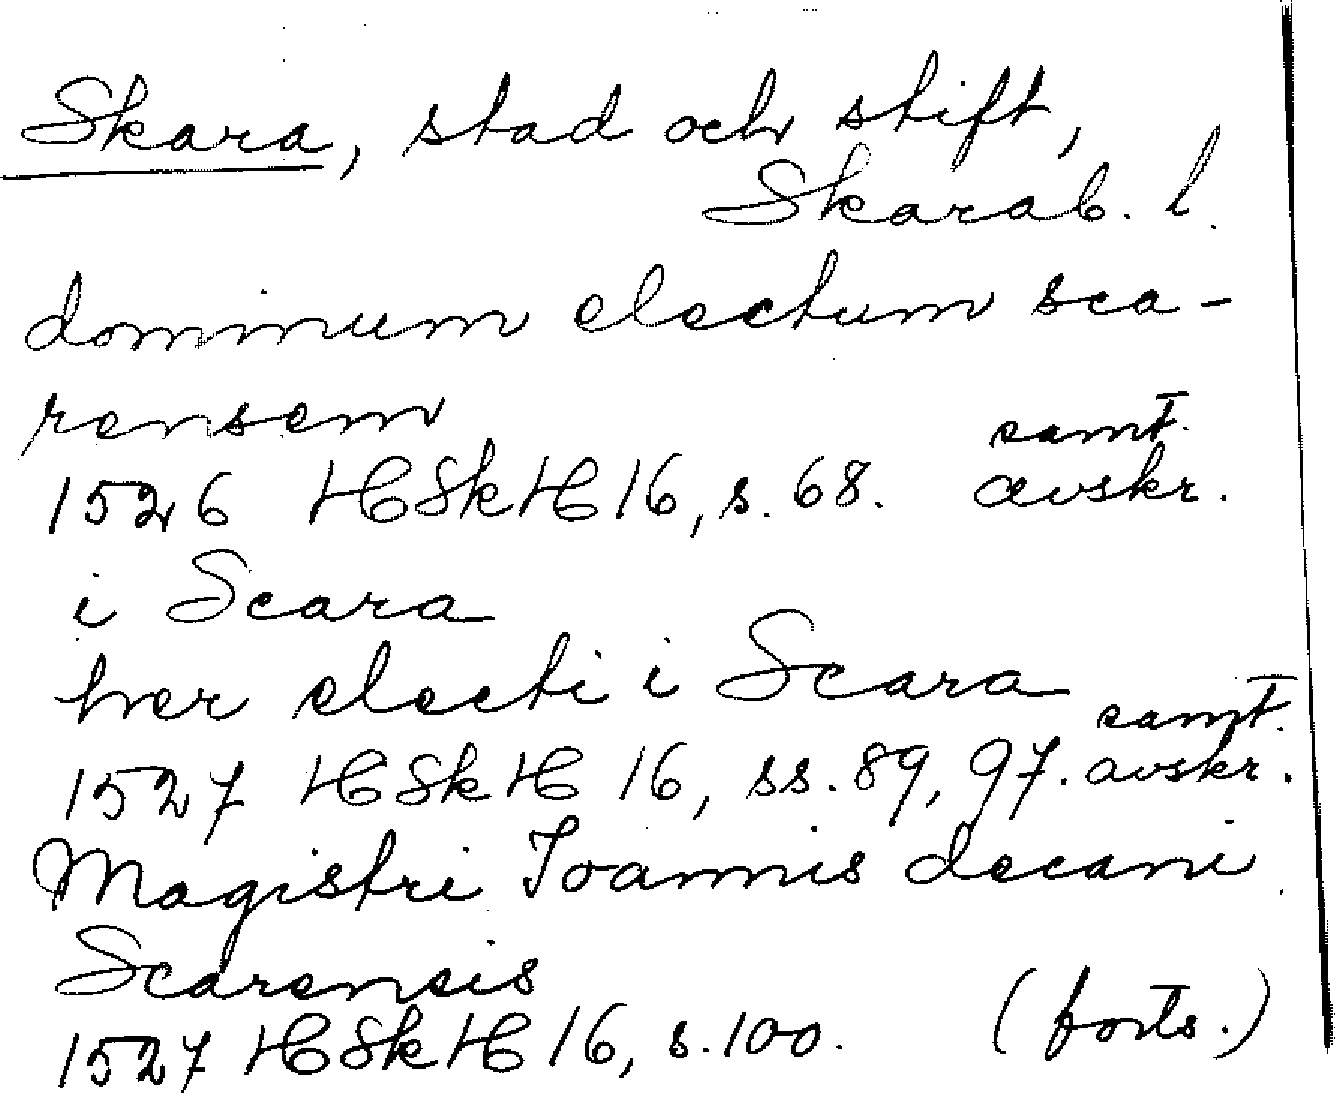 Skara, stad och stift,
Skarab. l.
dominum electum sca-
rensem
samt.
1526 HSkH 16, s. 68. avskr.
i Scara
her electi i Scara
samt.
1527 HSkH 16, ss. 89, 97. avskr.
Magistri Joannis decani
Scarensis
1527 HSkH 16, s. 100. (forts.)